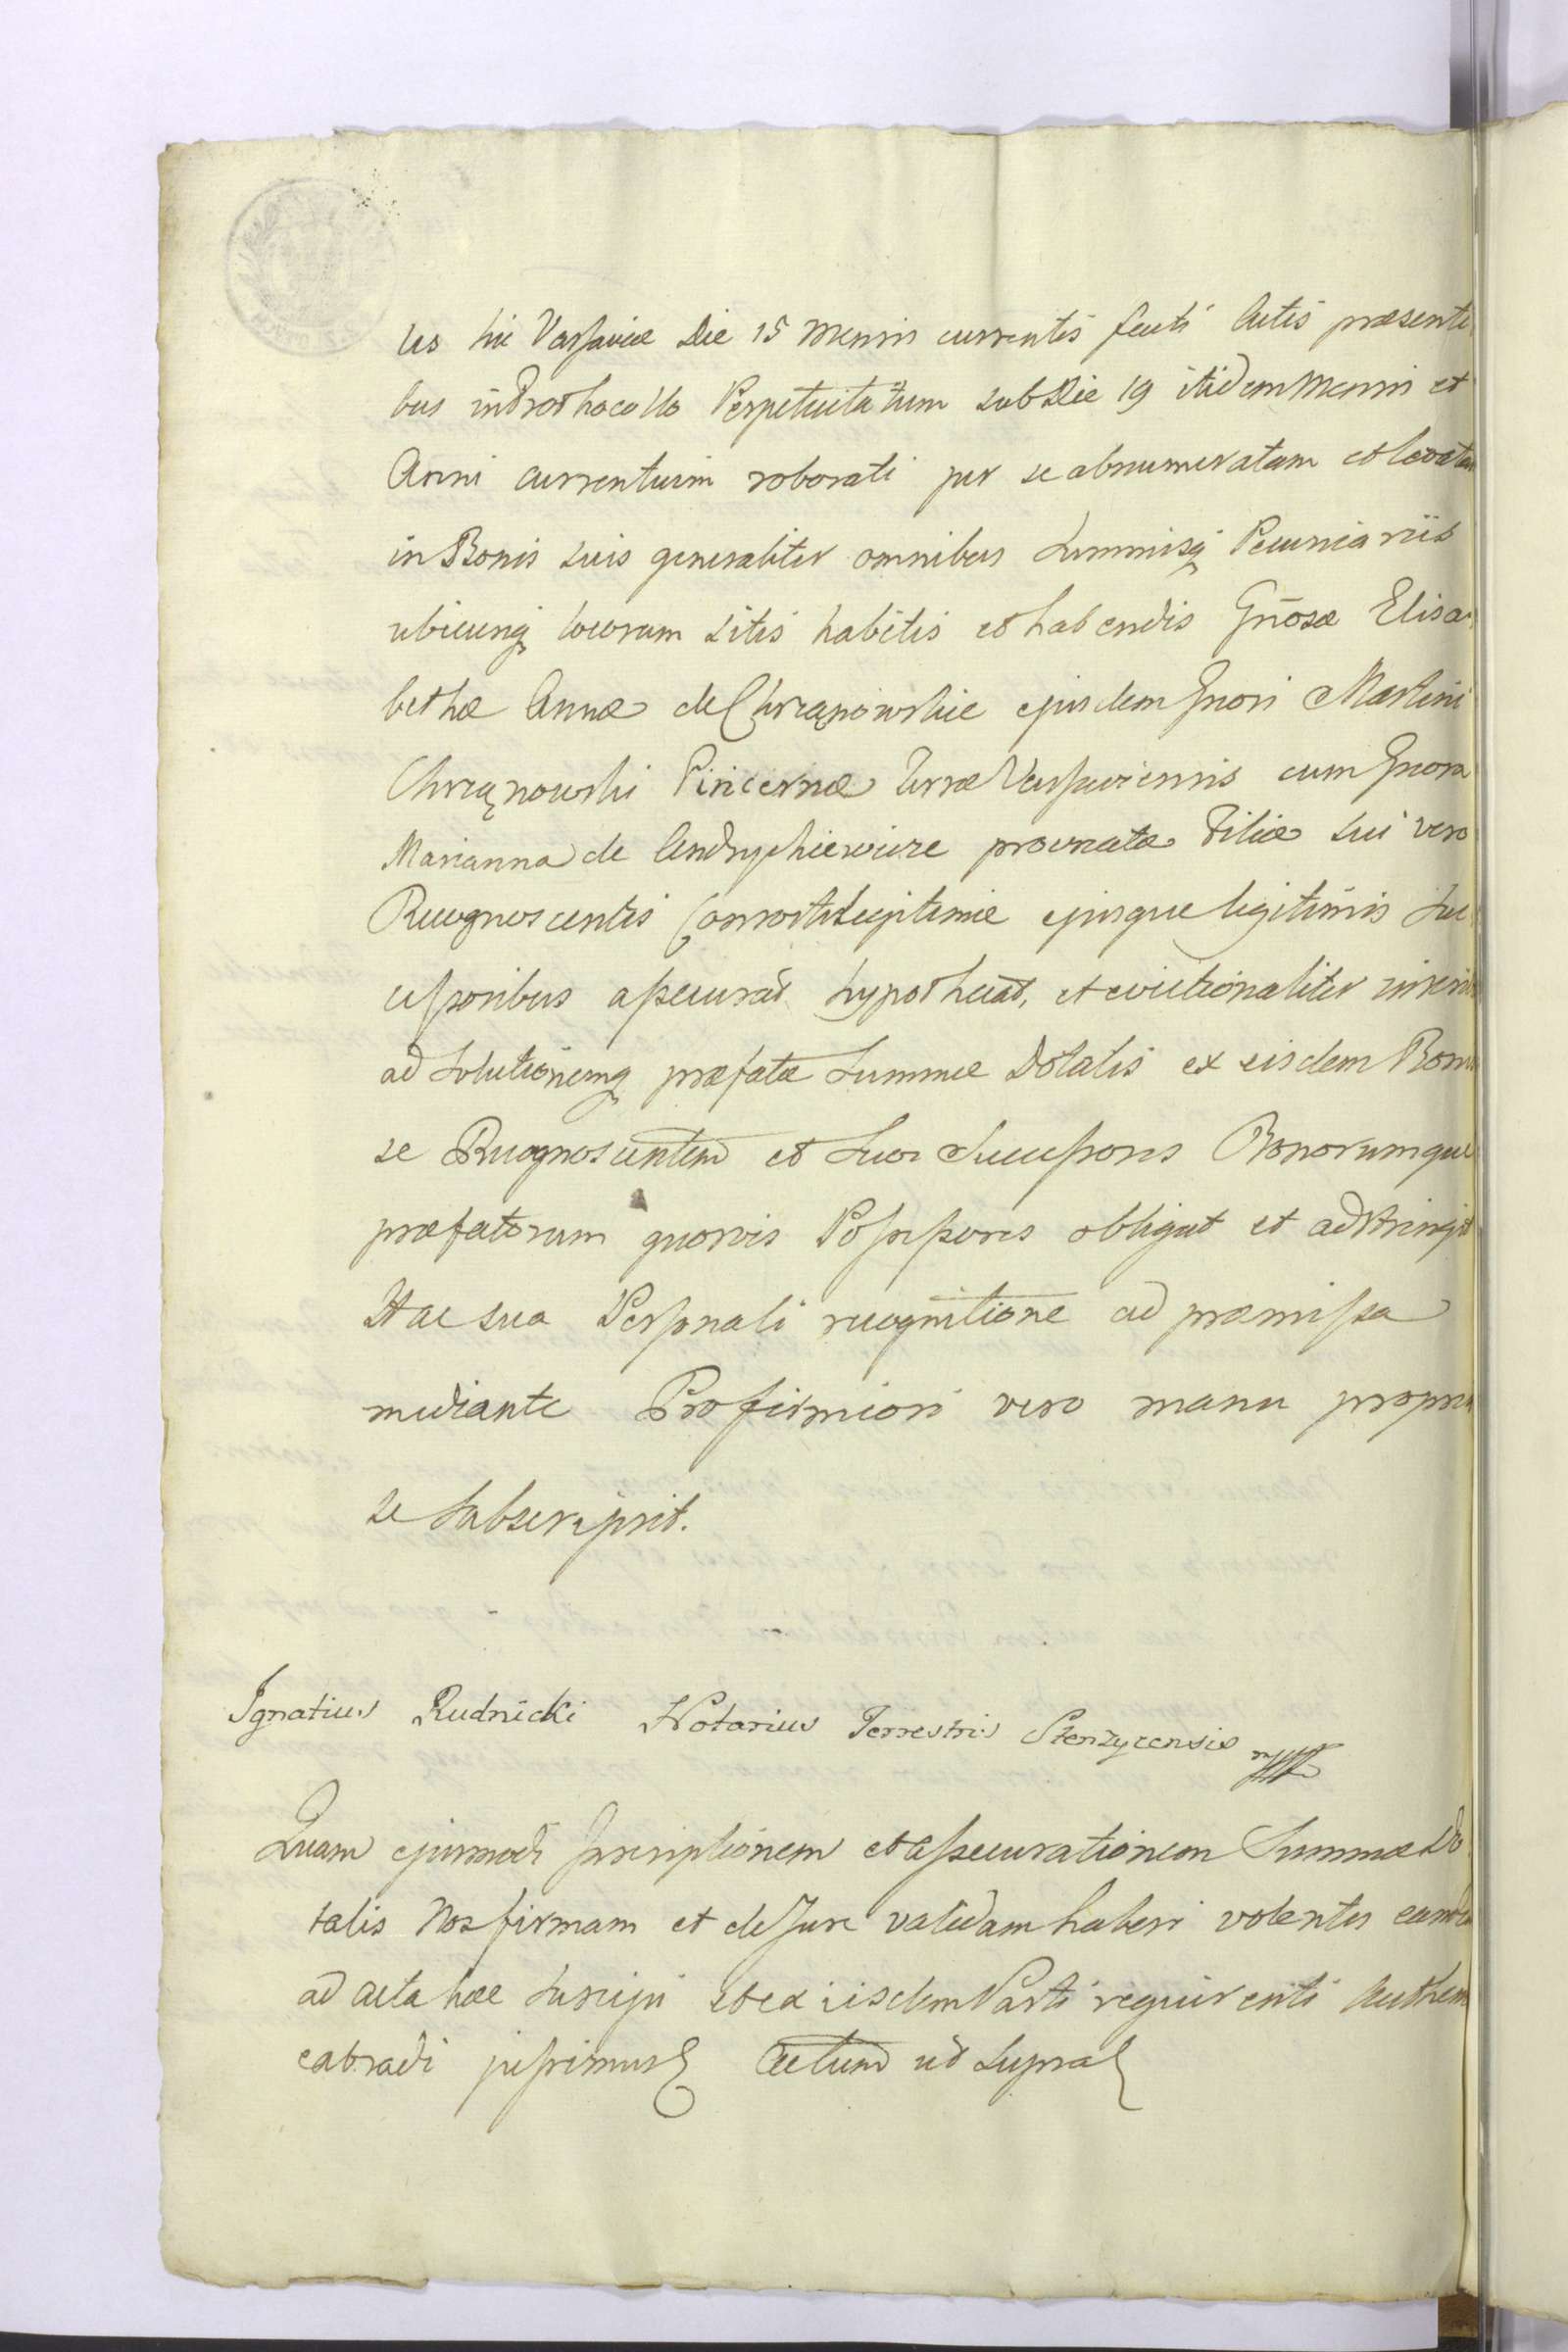 tes hic Varsaviae Die 15 Mensis currentis facti Actis praesenti
bus in Prothocollo Perpetuitatum sub Die 19 itidem Mensis et
Anni currentium roborati per se abnumeratam et levatam
in Bonis suis generaliter omnibus Summisq Pecuniariis
ubicunq locorum sitis habitis et habendis Gnosae Elisa
bethae Annae de Chrzanowskie ejusdem Gnosi Martini
Chrzanowski Pincernae Terrae Varsaviensis cum Gnosa
Marianna de Andrychiewicze procreatae Filiae sui vero
Recognoscentis Consorti Legitimae ejusque legitimis Suc
cessoribus assecurat hypothecat, et evictionaliter inscribit
ad Solutionemq praefatae Summae Dotalis ex eisdem Bonis
se Recognoscentem et Suos Successores Bonorumque
praefatorum quosvis Possessores obligat et adstringit
Hac sua Personali recognitione ad praemissa
mediante Pro firmiori vero manu propria
se Subscripsit.
Ignatius Rudnicki Notarius Terrestris Stenzycensis mpp
Quam ejusmodi Inscriptionem et assecurationem Summae Do
talis Nos firmam et de Jure validam haberi volentes eamdem
ad acta haec suscipi et ex iisdem Parti requirenti Authen
extradi jussimus Actum ut Supra